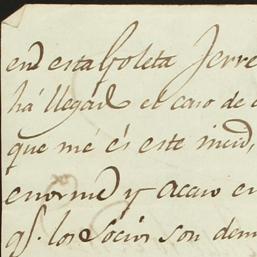 en esta Goleta
há llegad el caso de
que me és este
enorme y acaso en
qs. los Socios son dem